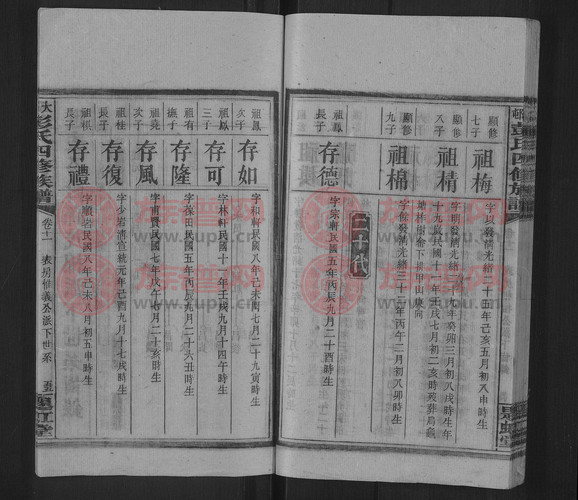 顯修
七子
祖梅
字以發清光緒二十五年己亥五月初八申時生
顯修
八子
祖精
字期發清光緒二十九年癸卯三月初三戌時生年
十九歲民國十一年壬戌七月初二亥時歿葬馬鞍
塘林樹侖下插甲山庚向
顯修
九子
祖棉
字餘發清光緒三十二年丙午二月初八卯時生
二十代
祖鳳
長子
存德
字宗軒民國五年丙辰九月二十酉時生
祖鳳
次子
存如
字和軒民國八年己未閏七月二十九寅時生
祖鳳
三子
存可
民國十一年壬戌九月十四午時生
祖堯
撫子
存隆
字葆田民國五年丙辰九月二十六丑時生
祖堯
次子
存風
字甫賓民國七年戊午七月二十亥時生
祖桂
長子
存復
字少岩清宣統元年己酉九月十七戌時生
祖棋
長子
存禮
字順岩民國八年己未八月初五申時生
彭氏四修族譜
卷十一
派下世系